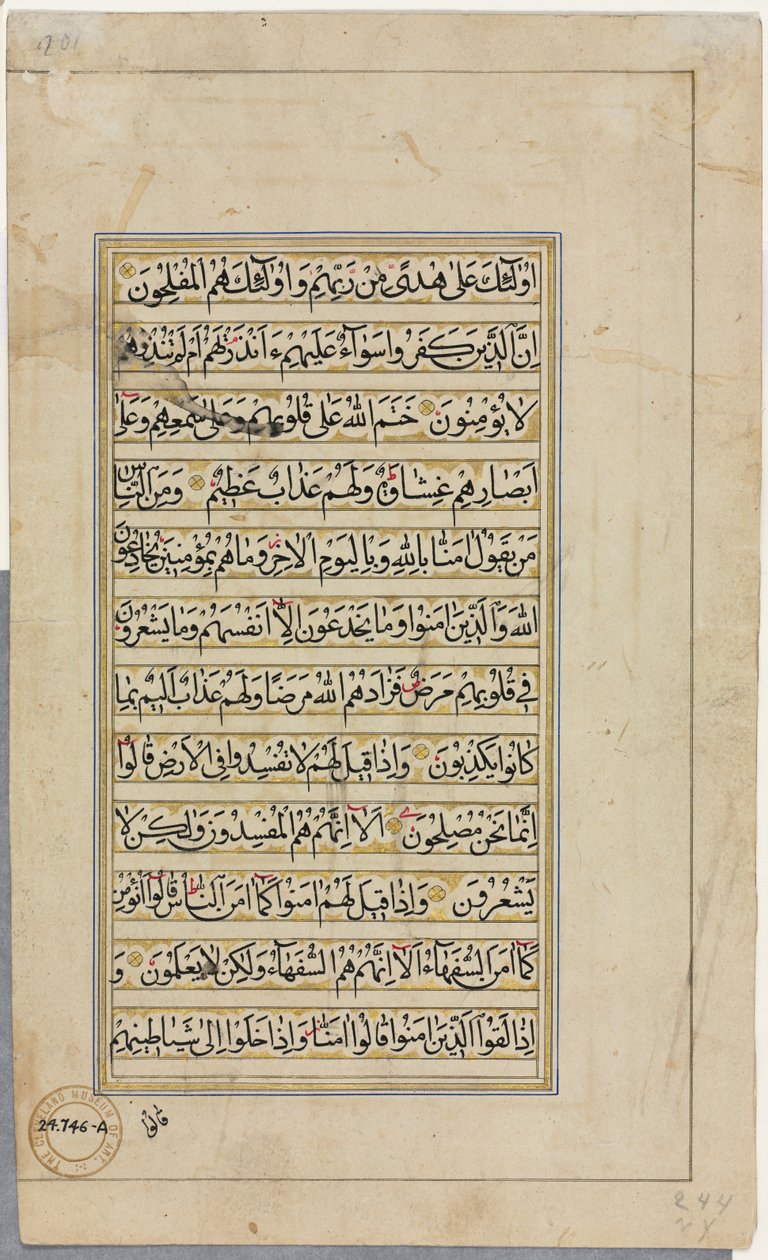 201
اُولٰٓئِكَ عَلٰى هُدًى مِنْ رَبِّهِمْ وَاُولٰٓئِكَ هُمُ الْمُفْلِحُونَ
اِنَّ الَّذِينَ كَفَرُوا سَوَآءٌ عَلَيْهِمْ ءَاَنْذَرْتَهُمْ اَمْ لَمْ تُنْذِرْهُمْ
لَا يُؤْمِنُونَ خَتَمَ اللّٰهُ عَلٰى قُلُوبِهِمْ وَعَلٰى سَمْعِهِمْ وَعَلٰٓى
اَبْصَارِهِمْ غِشَاوَةٌ وَلَهُمْ عَذَابٌ عَظِيمٌ وَمِنَ النَّاسِ
مَنْ يَقُولُ اٰمَنَّا بِاللّٰهِ وَبِالْيَوْمِ الْاٰخِرِ وَمَا هُمْ بِمُؤْمِنِينَ يُخَادِعُونَ
اللّٰهَ وَالَّذِينَ اٰمَنُوا وَمَا يَخْدَعُونَ اِلَّآ اَنْفُسَهُمْ وَمَا يَشْعُرُونَ
فِي قُلُوبِهِمْ مَرَضٌ فَزَادَهُمُ اللّٰهُ مَرَضًا وَلَهُمْ عَذَابٌ اَلِيمٌ بِمَا
كَانُوا يَكْذِبُونَ وَاِذَا قِيلَ لَهُمْ لَا تُفْسِدُوا فِي الْاَرْضِ قَالُوٓا
اِنَّمَا نَحْنُ مُصْلِحُونَ اَلَآ اِنَّهُمْ هُمُ الْمُفْسِدُونَ وَلٰكِنْ لَا
يَشْعُرُونَ وَاِذَا قِيلَ لَهُمْ اٰمِنُوا كَمَآ اٰمَنَ النَّاسُ قَالُوٓا اَنُؤْمِنُ
كَمَآ اٰمَنَ السُّفَهَآءُ اَلَآ اِنَّهُمْ هُمُ السُّفَهَآءُ وَلٰكِنْ لَا يَعْلَمُونَ وَ
اِذَا لَقُوا الَّذِينَ اٰمَنُوا قَالُوٓا اٰمَنَّا وَاِذَا خَلَوْا اِلٰى شَيَاطِينِهِمْ
قَالُوا
THE CLEVELAND MUSEUM OF ART
24.746-A
244